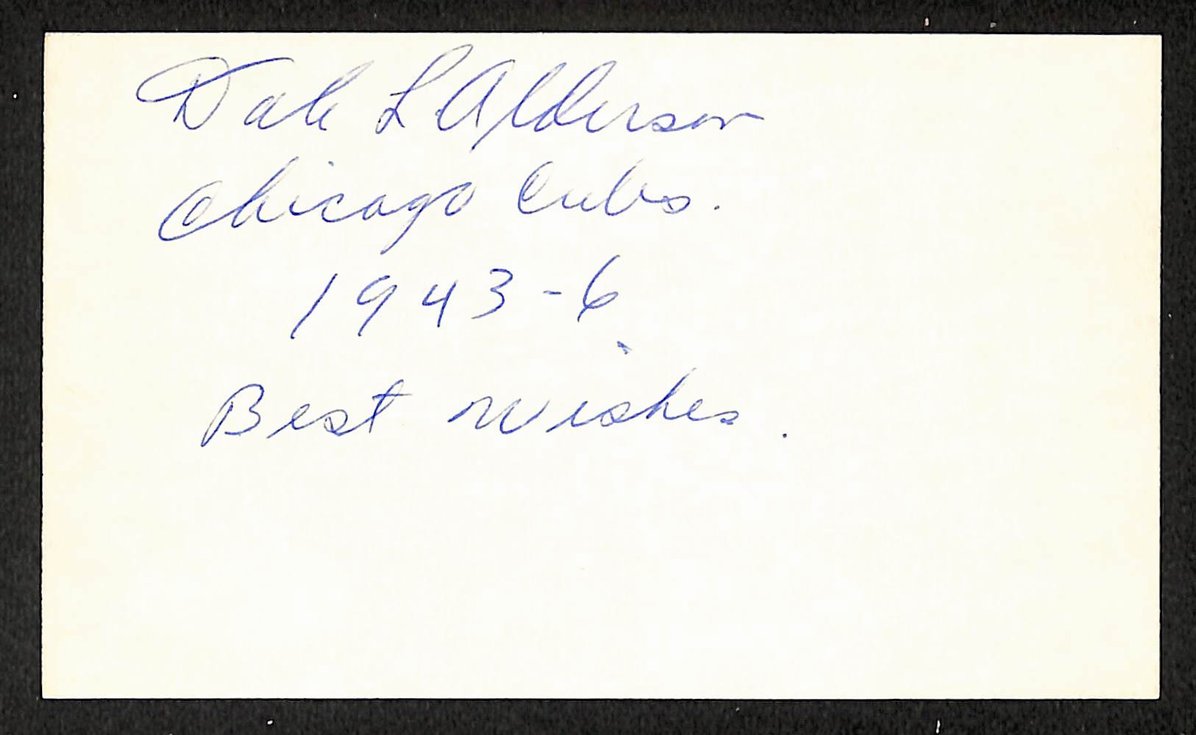 Dale L Alderson
Chicago Cubs.
1943-6
Best wishes.